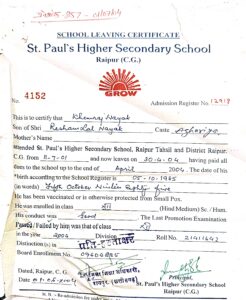 SCHOOL LEAVING CERTIFICATE
St. Paul's Higher Secondary School
Raipur (C.G.)
GROW
No.
4152
Admission Register No. 12918
This is to certify that Khemraj Nayak
Son of Shri Reshamlal Nayak Caste Aghariya
Mother's Name
attended St. Paul's Higher Secondary School, Raipur Tahsil and District Raipur.
C.G. from 2-7-01 and now leaves on 30-4-04 having paid all
dues to the school up to the end of April 2004. The date of his
birth according to the School Register is 05-10-1985
(in words) Fifth October Ninteen Eighty five
He has been vaccinated or is otherwise protected from Small Pox.
He was enrolled class (Hind Medium) Sc./ Hum.
His conduct was Good The Last Promotion Examination
Passed/Failed by him was that of class
in the year 2004 Division Roll No. 21411442
Distinction(s) in
Board Enrollment No.
Dated, Raipur. C. G. Principal,
St. Paul's Higher Secondary School
Raipur (C.G.)